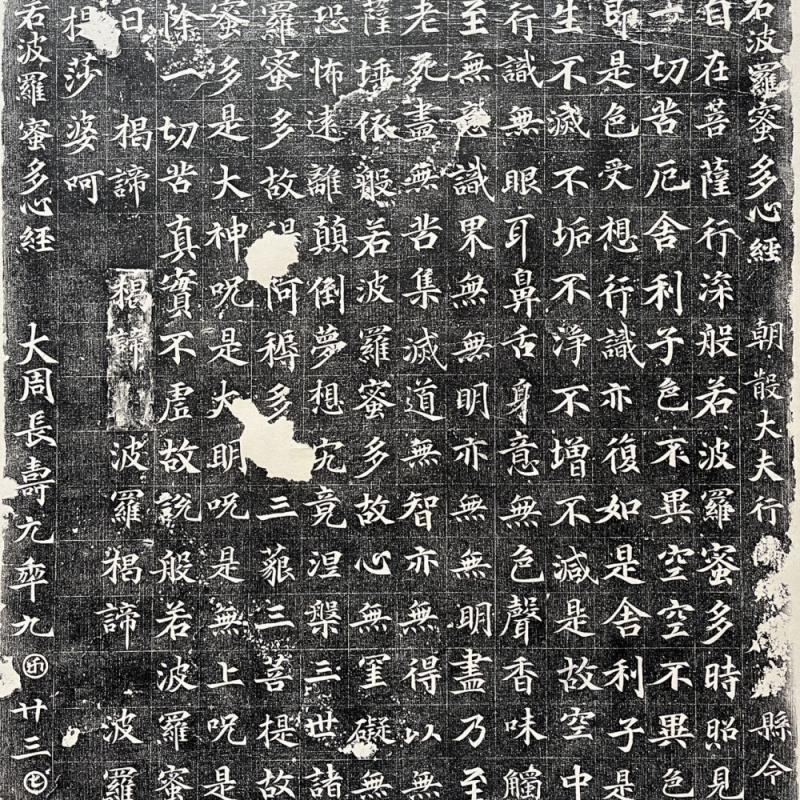 若波羅蜜多心經 朝散大夫行 縣令
自在菩薩行深般若波羅蜜多時照見
一切苦厄舍利子色不異空空不異色
即是色受想行識亦復如是舍利子是
生不滅不垢不淨不增不減是故空中
行識無眼耳鼻舌身意無色聲香味觸
至無意識果無無明亦無無明盡乃至
老死盡無苦集滅道無智亦無得以無
薩埵依般若波羅蜜多故心無罣礙無
恐怖遠離顛倒夢想究竟涅槃三世諸
羅蜜多故得阿耨多三藐三菩提故
蜜多是大神呪是大明呪是無上呪是
除一切苦真實不虛故說般若波羅蜜
曰 楬諦 楬諦 波羅楬諦 波羅
楬莎婆呵
若波羅蜜多心經 大周長壽元𠡦九𠥱廿三𡆠